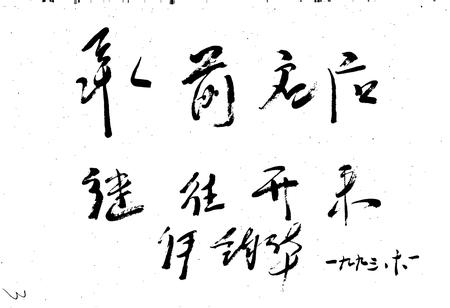 承前启后
继往开来
一九九三.六.一